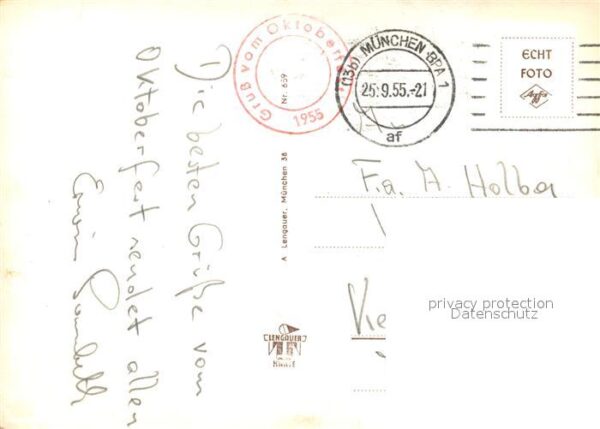 Die besten Grüße vom
Oktoberfest sendet allen
Erwin
Gruß vom Oktoberfest
1955
Nr. 659
(13b) MÜNCHEN BPA 1
25.9.55.-21
af
ECHT
FOTO
Agfa
A. Lengauer, München 38
LENGAUER
KARTE
Fa. A. Holba
privacy protection
Datenschutz